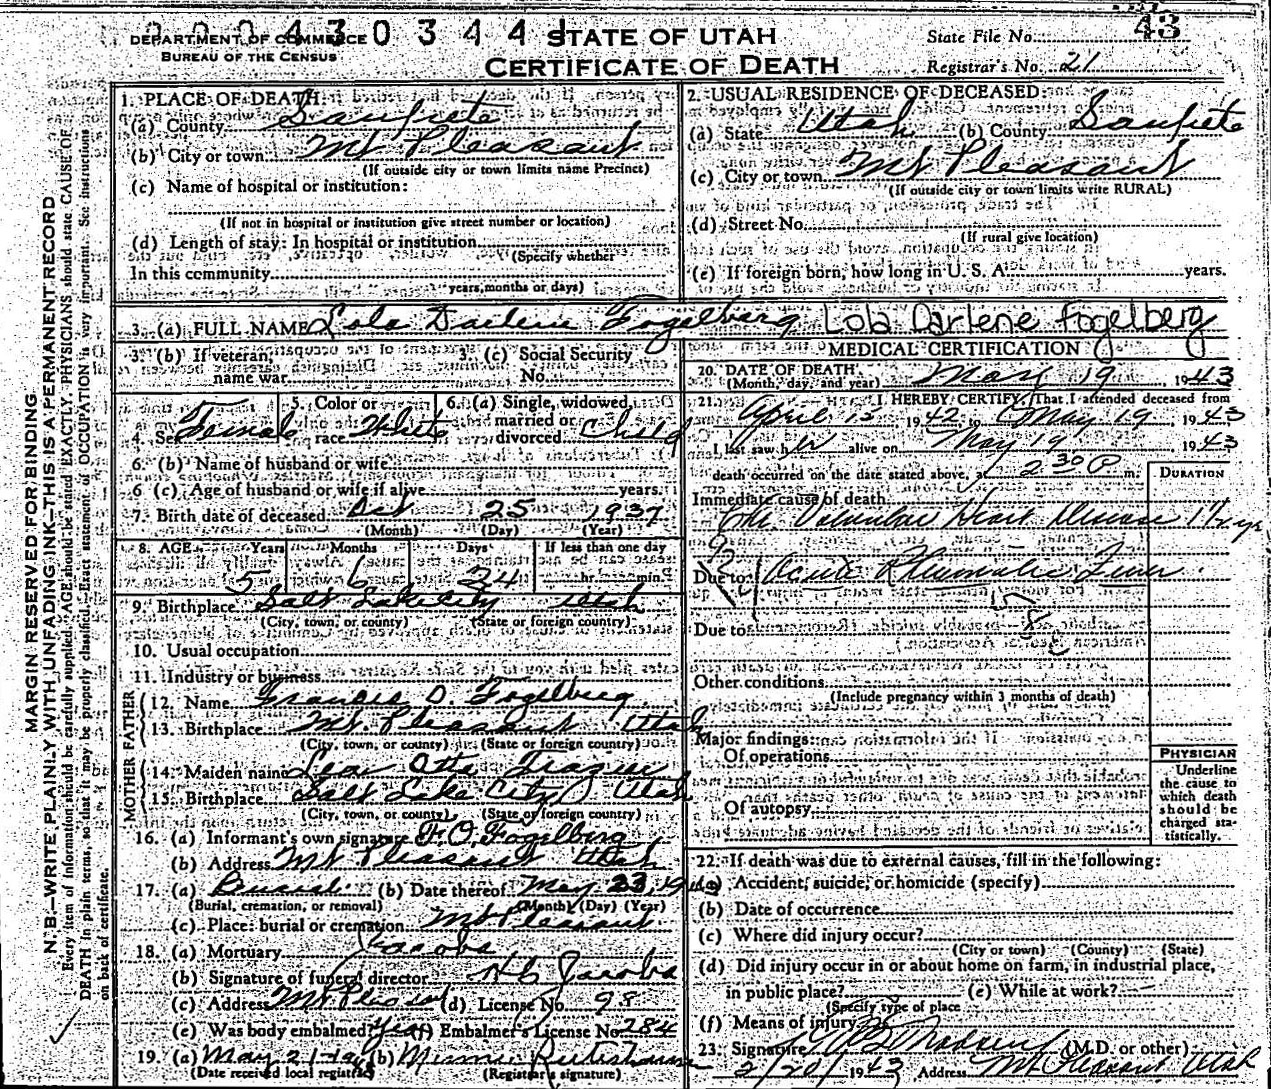 2004303441
DEPARTMENT OF COMMERCE
BUREAU OF THE CENSUS
STATE OF UTAH
CERTIFICATE OF DEATH
State File No. 43
Registrar's No. 21
MARGIN RESERVED FOR BINDING
N. B.—WRITE PLAINLY WITH UNFADING INK—THIS IS A PERMANENT RECORD
Every item of Information should be carefully supplied. AGE should be stated EXACTLY. PHYSICIANS should state CAUSE OF
DEATH in plain terms, so that it may be properly classified. Exact statement of OCCUPATION is very important. See instructions
on back of certificate.
1. PLACE OF DEATH:
(a) County Sanpete
(b) City or town Mt Pleasant
(If outside city or town limits name Precinct)
(c) Name of hospital or institution:
(If not in hospital or institution give street number or location)
(d) Length of stay: In hospital or institution
(Specify whether
In this community
years, months or days)
2. USUAL RESIDENCE OF DECEASED:
(a) State Utah (b) County Sanpete
(c) City or town Mt Pleasant
(If outside city or town limits write RURAL)
(d) Street No.
(If rural give location)
(e) If foreign born, how long in U. S. A. years.
3. (a) FULL NAME Lola Darlene Fogelberg Lola Darlene Fogelberg
3. (b) If veteran, name war
3. (c) Social Security No.
4. Sex Female
5. Color or race White
6. (a) Single, widowed, married or divorced Child
6. (b) Name of husband or wife
6 (c) Age of husband or wife if alive years.
7. Birth date of deceased Oct 25 1937
(Month) (Day) (Year)
8. AGE Years Months Days If less than one day
5 6 24 hr. min.
9. Birthplace Salt Lake City Utah
(City, town, or county) (State or foreign country)
10. Usual occupation
11. Industry or business
FATHER
12. Name Frances O. Fogelberg
13. Birthplace Mt. Pleasant Utah
(City, town, or county) (State or foreign country)
MOTHER
14. Maiden name
15. Birthplace Salt Lake City Utah
(City, town, or county) (State or foreign country)
16. (a) Informant's own signature F. O. Fogelberg
(b) Address Mt Pleasant Utah
17. (a) Burial (b) Date thereof May 23, 1943
(Burial, cremation, or removal) (Month) (Day) (Year)
(c) Place: burial or cremation Mt Pleasant
18. (a) Mortuary Jacobs
(b) Signature of funeral director Jacobs
(c) Address Mt Pleasant (d) License No. 98
(e) Was body embalmed? Yes (f) Embalmer's License No. 284
19. (a) May 21-19 (b) Minnie
(Date received local registrar) (Registrar's signature)
MEDICAL CERTIFICATION
20. DATE OF DEATH
(Month, day, and year) May 19, 1943
21. I HEREBY CERTIFY, That I attended deceased from
April 15 1942 to May 19, 1943
I last saw her alive on May 19 1943
death occurred on the date stated above, at 2 30 P m.
DURATION
Immediate cause of death
Chr. Valvular Heart Disease 1 1/2 yr
Due to Acute Rheumatic Fever
58
Due to
Other conditions
(Include pregnancy within 3 months of death)
Major findings:
Of operations
Of autopsy
PHYSICIAN
Underline
the cause to
which death
should be
charged sta-
tistically.
22. If death was due to external causes, fill in the following:
(a) Accident, suicide, or homicide (specify)
(b) Date of occurrence
(c) Where did injury occur?
(City or town) (County) (State)
(d) Did injury occur in or about home on farm, in industrial place,
in public place? (e) While at work?
(Specify type of place
(f) Means of injury
23. Signature Madsen (M.D. or other)
2/20/1943 Address Mt Pleasant Utah